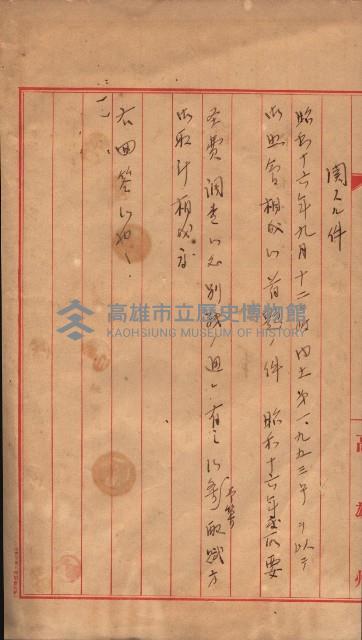 関スル件
昭和十六年九月十二日内土第一、九五三号ヲ以テ
御照会相成候首題ノ件 昭和十六年度所要
経費調査候処別紙ノ通リ有之候条 予算 配賦方
御取計相成度
右回答候也
高雄州
高雄市立歷史博物館
KAOHSIUNG MUSEUM OF HISTORY